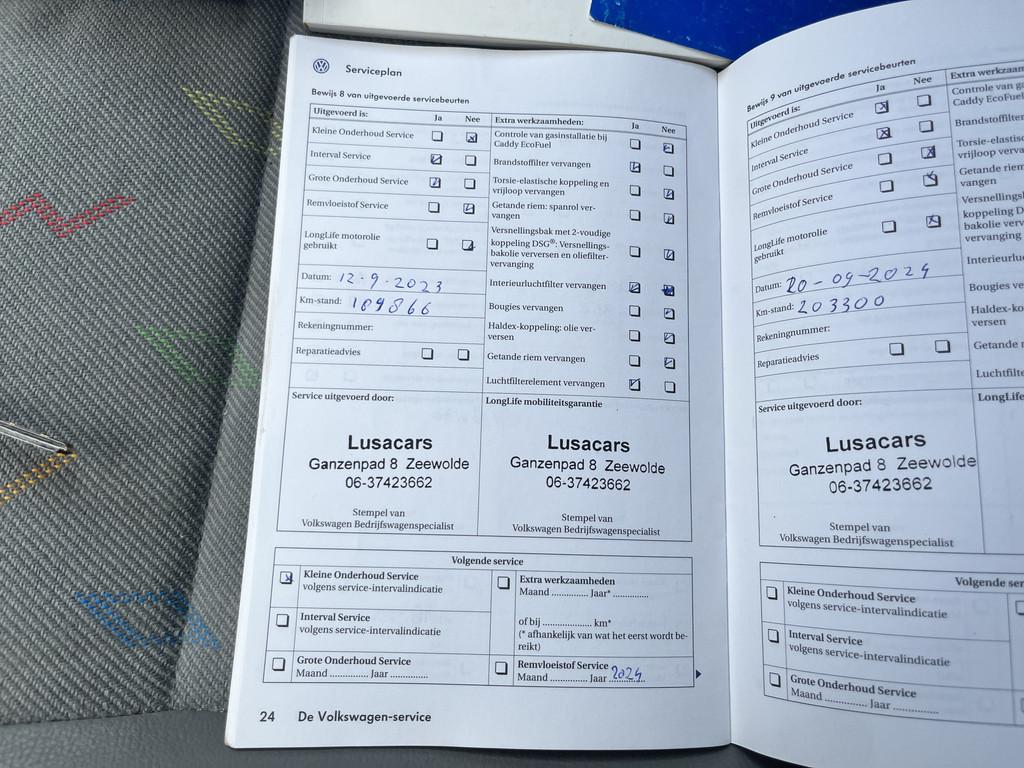 Serviceplan
Bewijs 8 van uitgevoerde servicebeurten
Uitgevoerd is: Ja Nee
Kleine Onderhoud Service
Interval Service
Grote Onderhoud Service
Remvloeistof Service
LongLife motorolie
gebruikt
Datum: 12-9-2023
Km-stand: 189866
Rekeningnummer:
Reparatieadvies
Extra werkzaamheden: Ja Nee
Controle van gasinstallatie bij
Caddy EcoFuel
Brandstoffilter vervangen
Torsie-elastische koppeling en
vrijloop vervangen
Getande riem: spanrol ver-
vangen
Versnellingsbak met 2-voudige
koppeling DSG®: Versnellings-
bakolie verversen en oliefilter-
vervanging
Interieurluchtfilter vervangen
Bougies vervangen
Haldex-koppeling: olie ver-
versen
Getande riem vervangen
Luchtfilterelement vervangen
Service uitgevoerd door:
Lusacars
Ganzenpad 8 Zeewolde
06-37423662
Stempel van
Volkswagen Bedrijfswagenspecialist
LongLife mobiliteitsgarantie
Lusacars
Ganzenpad 8 Zeewolde
06-37423662
Stempel van
Volkswagen Bedrijfswagenspecialist
Volgende service
Kleine Onderhoud Service
volgens service-intervalindicatie
Interval Service
volgens service-intervalindicatie
Grote Onderhoud Service
Maand .............. Jaar ..............
Extra werkzaamheden
Maand .............. Jaar* ..............
of bij .................... km*
(* afhankelijk van wat het eerst wordt be-
reikt)
Remvloeistof Service
Maand .............. Jaar 2024
24 De Volkswagen-service
Bewijs 9 van uitgevoerde servicebeurten
Uitgevoerd is: Ja Nee
Kleine Onderhoud Service
Interval Service
Grote Onderhoud Service
Remvloeistof Service
LongLife motorolie
gebruikt
Datum: 20-09-2024
Km-stand: 203300
Rekeningnummer:
Reparatieadvies
Extra
Controle van
Caddy EcoFuel
Brandstoffilter
Torsie-elastische
vrijloop
Getande riem
vangen
koppeling
bakolie
vervanging
Bougies
versen
Getande
Service uitgevoerd door:
Lusacars
Ganzenpad 8 Zeewolde
06-37423662
Stempel van
Volkswagen Bedrijfswagenspecialist
Volgende
Kleine Onderhoud Service
volgens service-intervalindicatie
Interval Service
volgens service-intervalindicatie
Grote Onderhoud Service
Maand .............. Jaar ..............